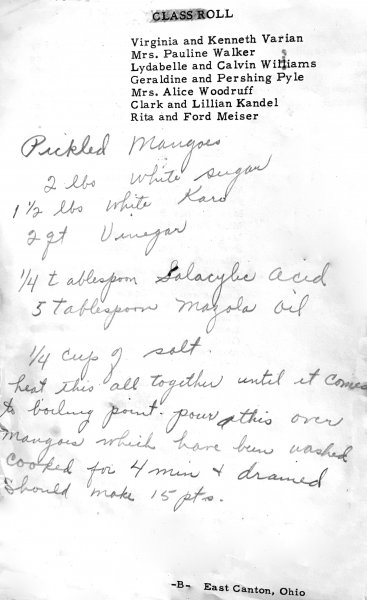 CLASS ROLL
Virginia and Kenneth Varian
Mrs. Pauline Walker
Lydabelle and Calvin Williams
Geraldine and Pershing Pyle
Mrs. Alice Woodruff
Clark and Lillian Kandel
Rita and Ford Meiser
Pickled Mangoes
2 lbs White sugar
1 1/2 lbs White Karo
2 qt Vinegar
1/4 tablespoon Salacylic Acid
5 Tablespoon Mazola oil
1/4 cup of salt.
heat this all together until it comes
to boiling point. pour this over
mangoes which have been washed
cooked for 4 min + drained
Should make 15 pts.
-B- East Canton, Ohio